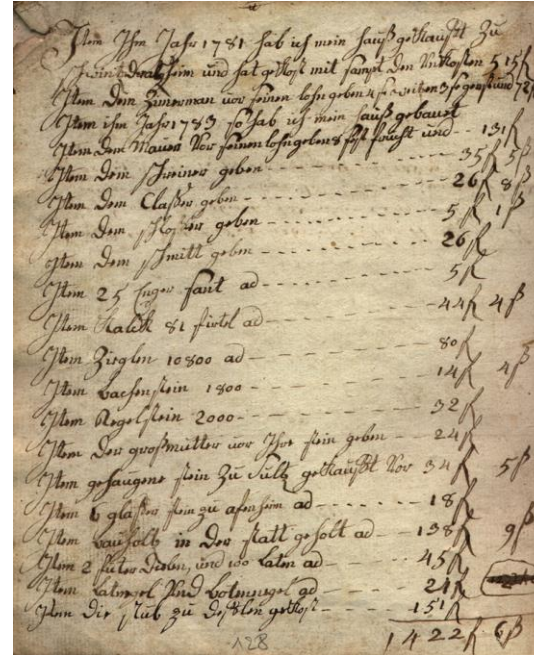 Item Ihm Jahr 1781 hab ich mein hauß gekaufft Zu
und hat gekost mit sampt den Unkosten 515 fl
Item Dem Zimerman vor seinen lohn geben 4 f weitzen 3 f gerst und 72 fl
Item ihm Jahr 1783 so hab ich mein hauß gebauet
Item Dem Maurer Vor seinen lohn geben 8 frucht und -- 131 fl
Item Dem schreiner geben - - - 35 fl 5 ß
Item Dem Claßer geben - - - 26 fl 8 ß
Item Dem schloßer geben - - - 5 fl 1 ß
Item Dem schmitt geben - - - 26 fl
Item 25 sant ad - - - 5 fl
Item Kalick 81 firtel ad - - - 44 fl 4 ß
Item Zieglen 10800 ad - - - 80 fl
Item bachenstein 1800 - - - 14 fl 4 ß
Item Kegelstein 2000 - - - 32 fl
Item Der großmutter vor Ihre stein geben - - 24 fl
Item gehaugene stein Zu Sultz gekaufft Vor 34 fl 5 ß
Item 6 glaßer stein zu afenheim ad - - - 18 fl
Item bauholtz in Der statt geholt ad - - - 138 fl 9 ß
Item 2 futer Dielen, und 100 laten ad - - - 45 fl
Item latnegel Und botennegel ad - - - 21 fl
Item die stub zu gekost - - - 151 fl
1422 fl 6 ß
128